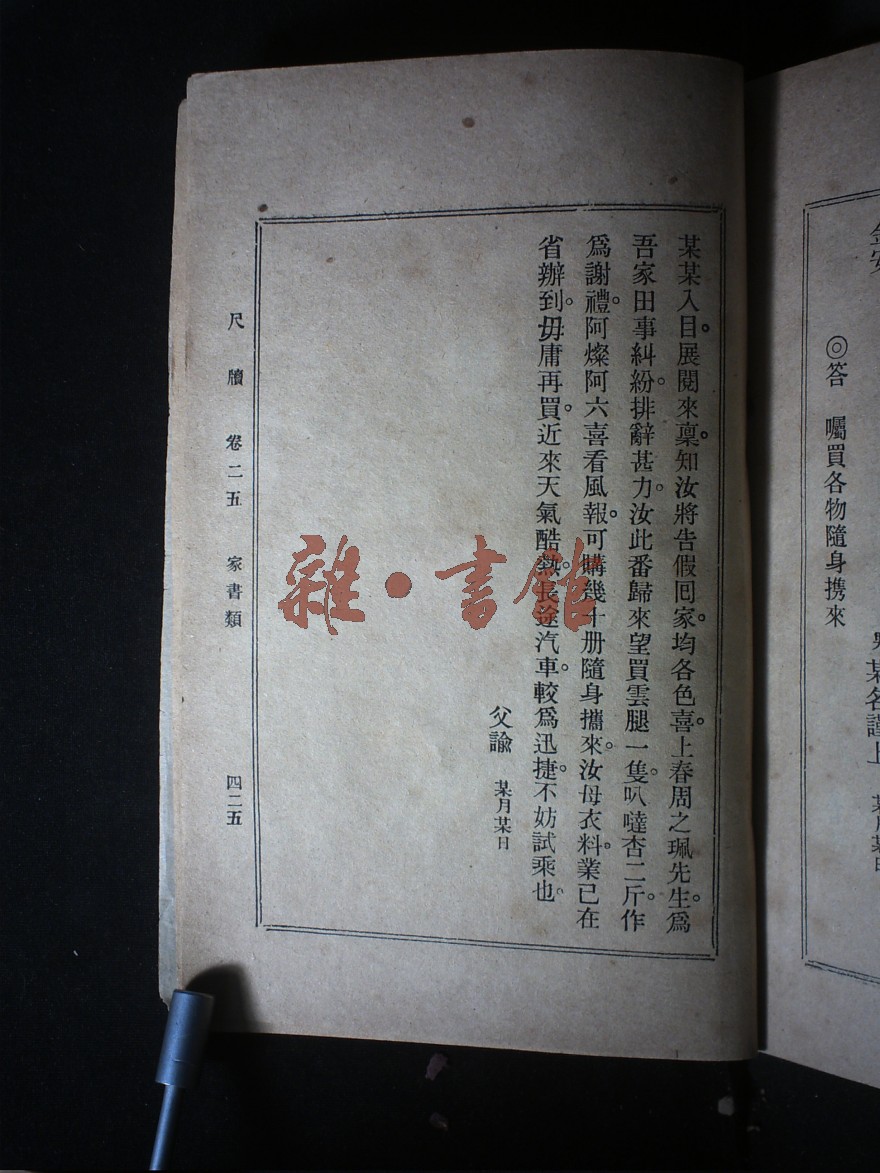 某名謹上 某月某日
◎答 囑買各物隨身携來
某某入目。展閱來稟。知汝將告假囘家。均各色喜。上春周之珮先生。爲
吾家田事糾紛。排辭甚力。汝此番歸來望買雲腿一隻。叭噠杏二斤。作
爲謝禮。阿燦阿六喜看風報。可購幾十册隨身攜來。汝母衣料。業已在
省辦到。毋庸再買。近來天氣酷熱。長途汽車。較爲迅捷。不妨試乘也。
父諭 某月某日
尺牘 卷二五 家書類 四二五
雜·書館